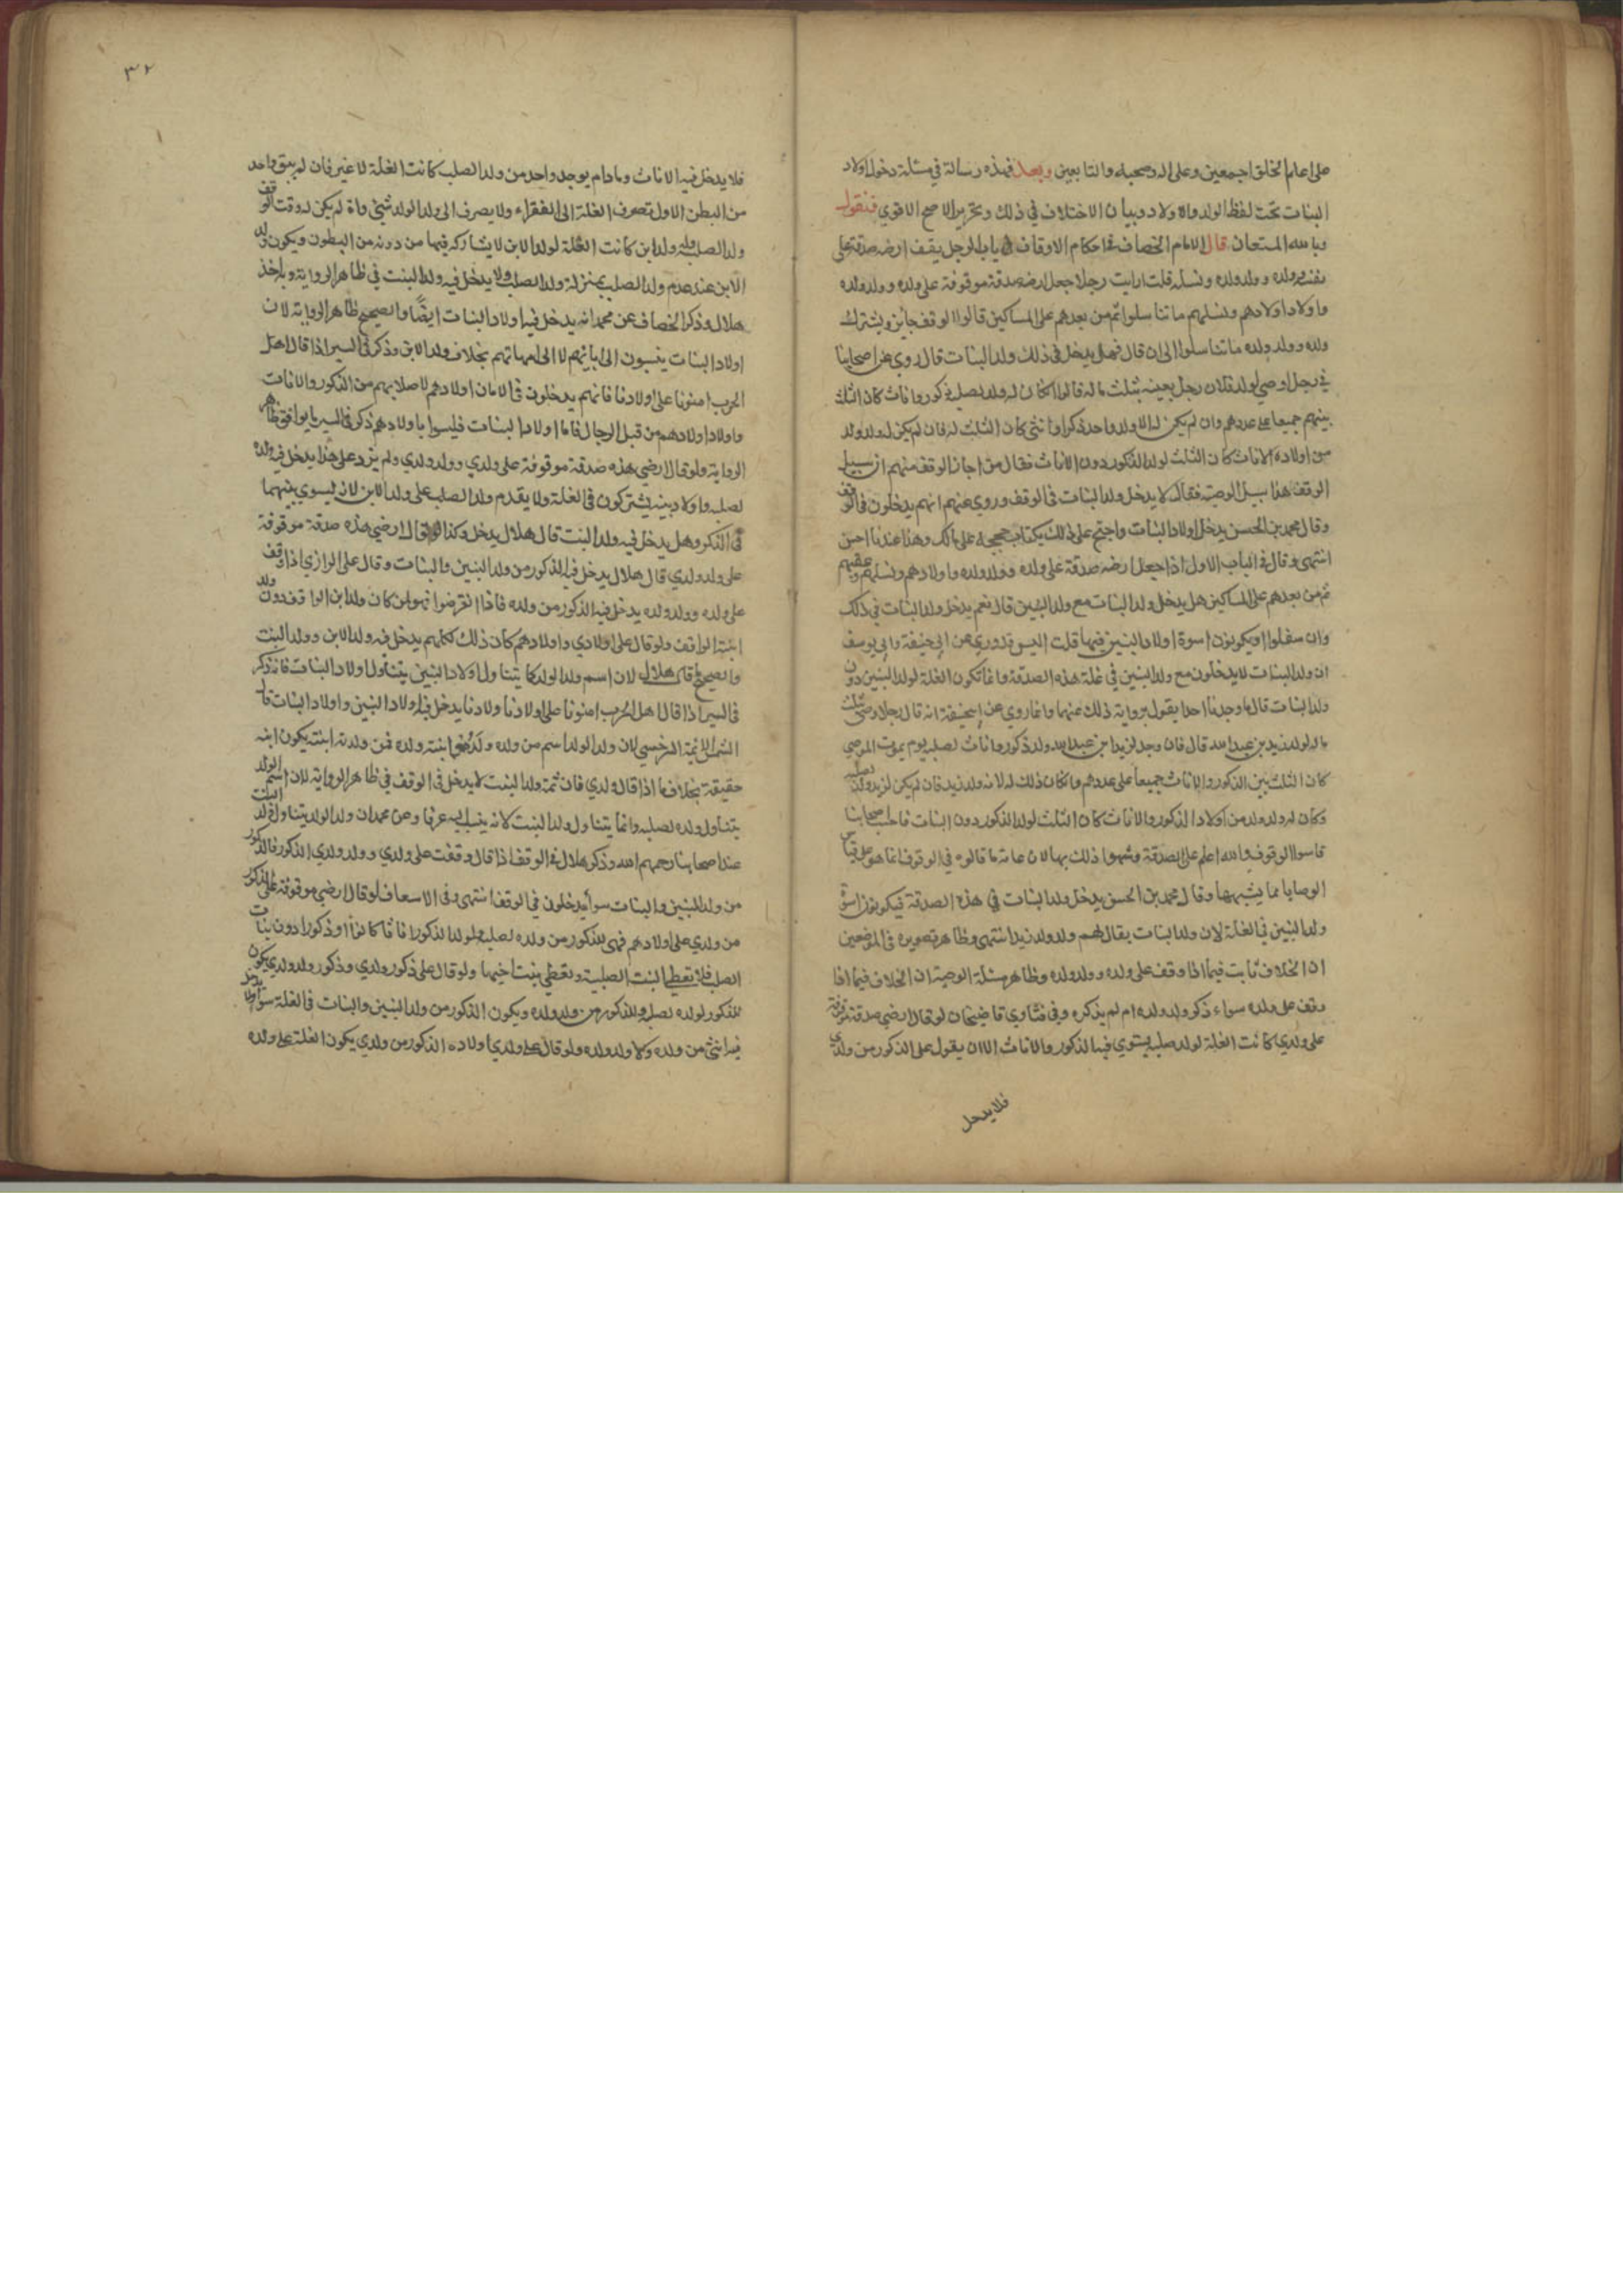 على اعلم الخلق اجمعين وعلى اله وصحبه والتابعين وبعد فهذه رسالة في مسئلة دخول اولاد
البنات تحت لفظ الولد والاولاد وبيان الاختلاف في ذلك وتحرير الاصح الاقوي فنقول
وبالله المستعان قال الامام الخصاف في احكام الاوقاف في باب الرجل يقف ارضه صدقة على
نفسه وولده وولد ولده ونسله قلت ارايت رجلا جعل ارضه صدقة موقوفة على ولده وولد ولده
واولاد اولادهم ونسلهم ما تناسلوا ثم من بعدهم على المساكين قالوا الوقف جايز ويشترك
ولده وولد ولده ما تناسلوا الى ان قال فهل يدخل في ذلك ولد البنات قال روي عن اصحابنا
في رجل اوصي لولد فلان رجل بعينه بثلث ماله قالوا ان كان له ولد لصلبه ذكور واناث كان الثلث
بينهم جميعا على عددهم وان لم يكن له الا ولد واحد ذكرا او انثى كان الثلث له فان لم يكن له ولد وله ولد
من اولاده الاناث كان الثلث لولد الذكور دون الاناث فقال من اجاز الوقف منهم ان سبيل
الوقف هذا سبيل الوصية فقال لا يدخل ولد البنات في الوقف وروي عنهم انهم يدخلون في الوقف
وقال محمد بن الحسن يدخل اولاد البنات واحتج على ذلك بكتاب حججه على مالك وهذا عندنا احسن
انتهى وقال في الباب الاول اذا جعل ارضه صدقة على ولده وولد ولده واولادهم ونسلهم وعقبهم
ثم من بعدهم على المساكين هل يدخل ولد البنات مع ولد البنين قال نعم يدخل ولد البنات في ذلك
وان سفلوا ويكونون اسوة اولاد البنين فيها قلت اليس قد روي عن ابي حنيفة وابي يوسف
ان ولد البنات لا يدخلون مع ولد البنين في غلة هذه الصدقة وانما تكون الغلة لولد البنين دون
ولد البنات قال ما وجدنا احدا يقول برواية ذلك عنهما وانما روي عن ابي حنيفة انه قال رجل اوصى بثلث
ماله لولد زيد بن عبد الله قال فان وجد لزيد بن عبد الله ولد ذكور واناث لصلبه يوم يموت الموصي
كان الثلث بين الذكور والاناث جميعا على عددهم وانما كان ذلك له لانه ولد زيد فان لم يكن لزيد ولد لصلبه
وكان له ولد ولد من اولاد الذكور والاناث كان الثلث لولد الذكور دون البنات
قاسوا الوقوف والله اعلم على الصدقة وشبهوا ذلك بها لان عامة ما قالوه في الوقوف انما هو على قياس
الوصايا مما يشبهها وقال محمد بن الحسن يدخل ولد البنات في هذه الصدقة فيكونون اسوة
ولد البنين في الغلة لان ولد البنات يقال لهم ولد ولد زيد انتهى وظاهر تصويره في الموضعين
ان الخلاف ثابت فيما اذا وقف على ولده وولد ولده وظاهر مسئلة الوصية ان الخلاف فيما اذا
وقف على ولده سواء ذكر ولد ولده ام لم يذكره وفي فتاوي قاضيخان لو قال ارضي صدقة موقوفة
على ولدي كانت الغلة لولد صلبه يستوي فيه الذكور والاناث الا ان يقول على الذكور من ولدي
فلا يدخل
٣٢
فلا يدخل فيه الاناث وما دام يوجد واحد من ولد الصلب كانت الغلة له لا غير فان لم يبق واحد
من البطن الاول تصرف الغلة الى الفقراء ولا يصرف الى ولد الولد شيئ وان لم يكن له وقت الوقف
ولد الصلب وله ولد ابن كانت الغلة لولد الابن لا يشاركه فيها من دونه من البطون ويكون ولد
الابن عند عدم ولد الصلب بمنزلة ولد الصلب ولا يدخل فيه ولد البنت في ظاهر الرواية وبه اخذ
هلال وذكر الخصاف عن محمد انه يدخل فيه اولاد البنات ايضًا والصحيح ظاهر الرواية لان
اولاد البنات ينسبون الى ابائهم لا الى امهاتهم بخلاف ولد الابن وذكر في السير اذا قال اهل
الحرب امنونا على اولادنا فانهم يدخلون في الامان اولادهم لاصلابهم من الذكور والاناث
واولاد اولادهم من قبل الرجال فاما اولاد البنات فليسوا باولادهم ذكر في السير ما يوافق ظاهر
الرواية ولو قال ارضي هذه صدقة موقوفة على ولدي وولد ولدي ولم يزد على هذا يدخل فيه ولده
لصلبه واولاد بنيه يشتركون في الغلة ولا يقدم ولد الصلب على ولد الابن لانه يسوي بينهما
في الذكر وهل يدخل فيه ولد البنت قال هلال يدخل وكذا لو قال ارضي هذه صدقة موقوفة
على ولد ولدي قال هلال يدخل فيه الذكور من ولد البنين والبنات وقال على الرازي اذا وقف
على ولده وولد ولده يدخل فيه الذكور من ولده فاذا انقرضوا فهو لمن كان ولد ابن الواقف دون ولد
ابنة الواقف ولو قال على اولادي واولادهم كان ذلك لكلهم يدخل فيه ولد الابن وولد البنت
والصحيح ما قال هلال لان اسم ولد الولد كما يتناول اولاد البنين يتناول اولاد البنات فانه ذكر
في السير اذا قال اهل الحرب امنونا على اولاد اولادنا يدخل فيه اولاد البنين واولاد البنات قال
الشمس الائمة السرخسي لان ولد الولد اسم من ولده ولده وابنته ولده فمن ولدته ابنته يكون ابنه
حقيقة بخلاف ما اذا قال ولدي فان ثمة ولد البنت لا يدخل في الوقف في ظاهر الرواية لان اسم الولد
يتناول ولده لصلبه وانما يتناول ولد البنت لانه ينسب اليه عرفا وعن محمد ان ولد الولد يتناول ولد البنت
عند اصحابنا رحمهم الله وذكر هلال في الوقف اذا قال وقفت على ولدي وولد ولدي الذكور فالذكور
من ولد البنين والبنات سواء يدخلون في الوقف انتهى وفي الاسعاف لو قال ارضي موقوفة على الذكور
من ولدي على اولادهم فهي للذكور من ولده لصلبه ولولد الذكور اناثا كانوا او ذكورا دون بنات
الصلب فلا يعطى البنت الصلبية وتعطي بنت اخيها ولو قال على ذكور ولدي وذكور ولد ولدي يكون
للذكور لولده لصلبه وللذكور من ولد ولده ويكون الذكور من ولد البنين والبنات في الغلة سواء ولا يدخل
فيه انثى من ولده ولا ولد ولده ولو قال على ولدي واولاده الذكور من ولدي يكون الغلة على ولده